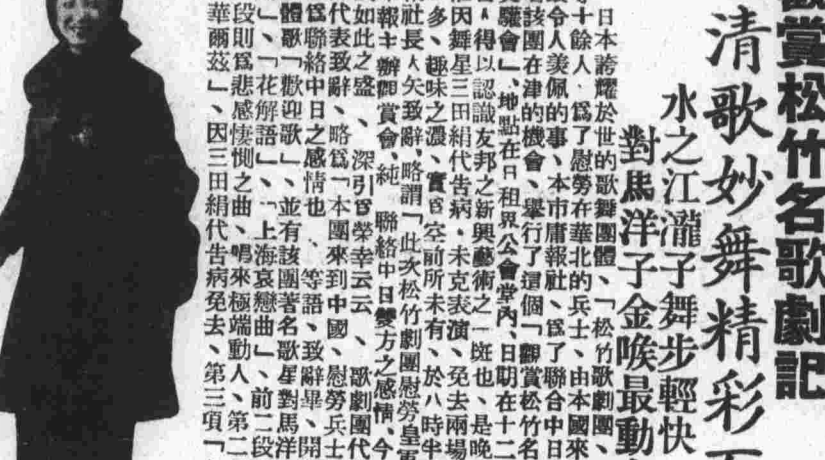 觀賞松竹名歌劇記
清歌妙舞精彩
水之江瀧子舞步輕快
對馬洋子金喉最動
日本誇耀於世的歌舞團體、「松竹歌劇團、
等十餘人、爲了慰勞在華北的兵士、由本國來
令人羨佩的事、本市庸報社、爲了聯合中日
該團在津的機會、舉行了這個「觀賞松竹名
會」、地點在日租界公會堂內、日期在十二
人得以認識友邦之新興藝術之一斑也、是晚
因舞星三田絹代告病、未克表演、免去兩場
多、趣味之濃、實爲空前所未有、於八時半
社長人矢致辭、略謂「此次松竹劇團慰勞皇軍
報主辦觀賞會、純 聯絡中日雙方之感情、今
如此之盛、 深引爲榮幸云云 、歌劇團代
代表致辭、略爲「本團來到中國、慰勞兵士
爲聯絡中日之感情也 、等語、致辭畢、開
體歌「歡迎歌」、並有該團著名歌星對馬洋
」、「花解語」、「上海哀戀曲」、前二段
段則爲悲感悽惻之曲、唱來極端動人、第二
華爾茲」、因三田絹代告病免去、第三項「